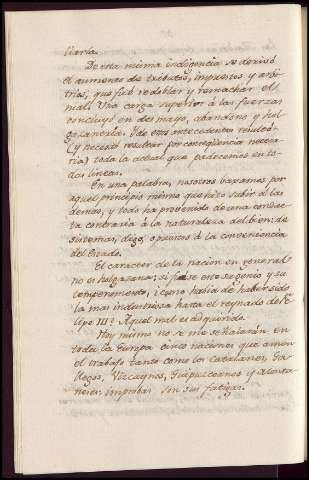 ciarla.
De esta misma indigencia se derivó
el aumento de tributos, impuestos y arbi-
trios, que fué redoblar y remachar el
mal. Una carga superior á las fuerzas
concluyó en desmayo, abandono y hol-
gazanería. Y de estos antecedentes resultó
(y necesitó resultar por conseqüencia necesa-
ria) toda la actual que padecemos en to-
das lineas.
En una palabra, nosotros baxamos por
aquel principio mismo que hizo subir á las
demas, y todo ha provenido de una conduc-
ta contraria á la naturaleza del bien; de
sistemas, digo, opuestos á la conveniencia
del Estado.
El caracter de la nacion en general
no es holgazana; si fuese ese su genio y su
temperamento, ¿como habia de haber sido
la mas industriosa hasta el reynado de Fe-
lipe III? Aquel mal es adquirido.
Hoy mismo no se me señalarán en
toda la Europa cinco naciones que amen
el trabajo tanto como los Catalanes, Ga-
llegos, Vizcaynos, Guipuzcoanos y
son sus fatigas.